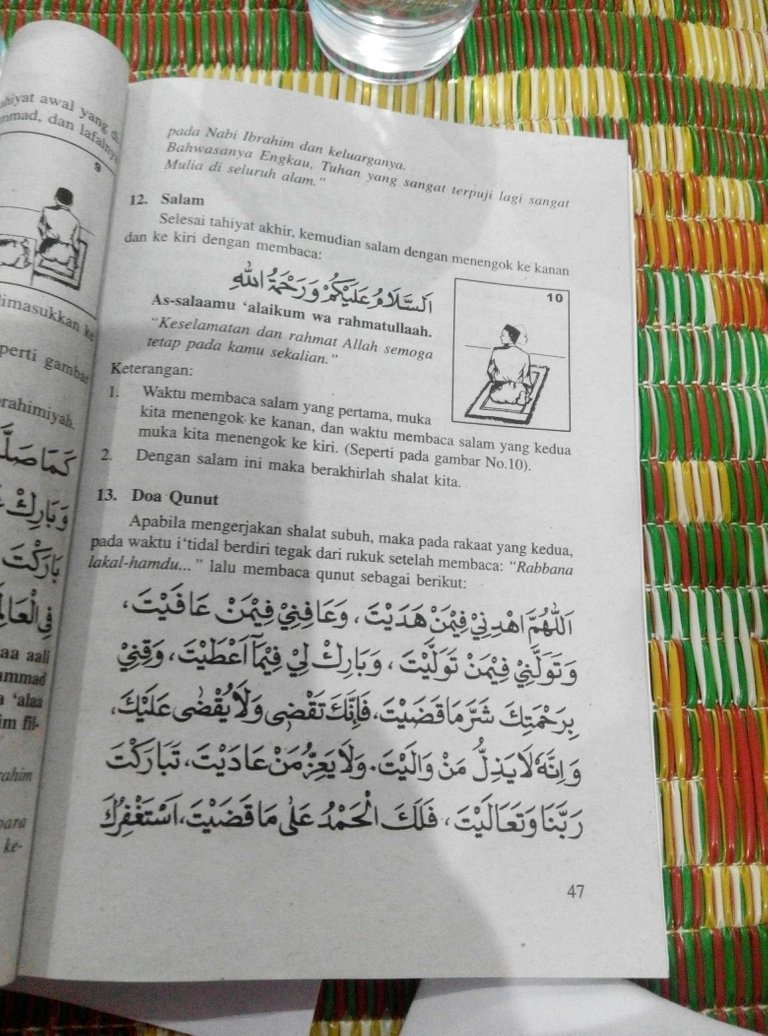 ahiyat awal yang
mmad, dan lafaln
9
limasukkan ke
perti gambar
rahimiyah.
كَمَا صَلَّ
وَبَارِكْ
بَارَكْتَ
فِي الْعَالَمِ
aa aali
ammad
a ‘alaa
im fil-
rahim
para
ke-
pada Nabi Ibrahim dan keluarganya.
Bahwasanya Engkau, Tuhan yang sangat terpuji lagi sangat
Mulia di seluruh alam.”
12. Salam
Selesai tahiyat akhir, kemudian salam dengan menengok ke kanan
dan ke kiri dengan membaca:
اَلسَّلَامُ عَلَيْكُمْ وَرَحْمَةُ اللهِ
As-salaamu ‘alaikum wa rahmatullaah.
“Keselamatan dan rahmat Allah semoga
tetap pada kamu sekalian.”
10
Keterangan:
1. Waktu membaca salam yang pertama, muka
kita menengok ke kanan, dan waktu membaca salam yang kedua
muka kita menengok ke kiri. (Seperti pada gambar No.10).
2. Dengan salam ini maka berakhirlah shalat kita.
13. Doa Qunut
Apabila mengerjakan shalat subuh, maka pada rakaat yang kedua,
pada waktu i‘tidal berdiri tegak dari rukuk setelah membaca: “Rabbana
lakal-hamdu...” lalu membaca qunut sebagai berikut:
اَللّٰهُمَّ اهْدِنِيْ فِيْمَنْ هَدَيْتَ، وَعَافِنِيْ فِيْمَنْ عَافَيْتَ،
وَتَوَلَّنِيْ فِيْمَنْ تَوَلَّيْتَ، وَبَارِكْ لِيْ فِيْمَآ اَعْطَيْتَ، وَقِنِيْ
بِرَحْمَتِكَ شَرَّ مَا قَضَيْتَ، فَاِنَّكَ تَقْضِى وَلَا يُقْضٰى عَلَيْكَ،
وَاِنَّهٗ لَا يَذِلُّ مَنْ وَالَيْتَ. وَلَا يَعِزُّ مَنْ عَادَيْتَ، تَبَارَكْتَ
رَبَّنَا وَتَعَالَيْتَ، فَلَكَ الْحَمْدُ عَلٰى مَا قَضَيْتَ، اَسْتَغْفِرُكَ
47